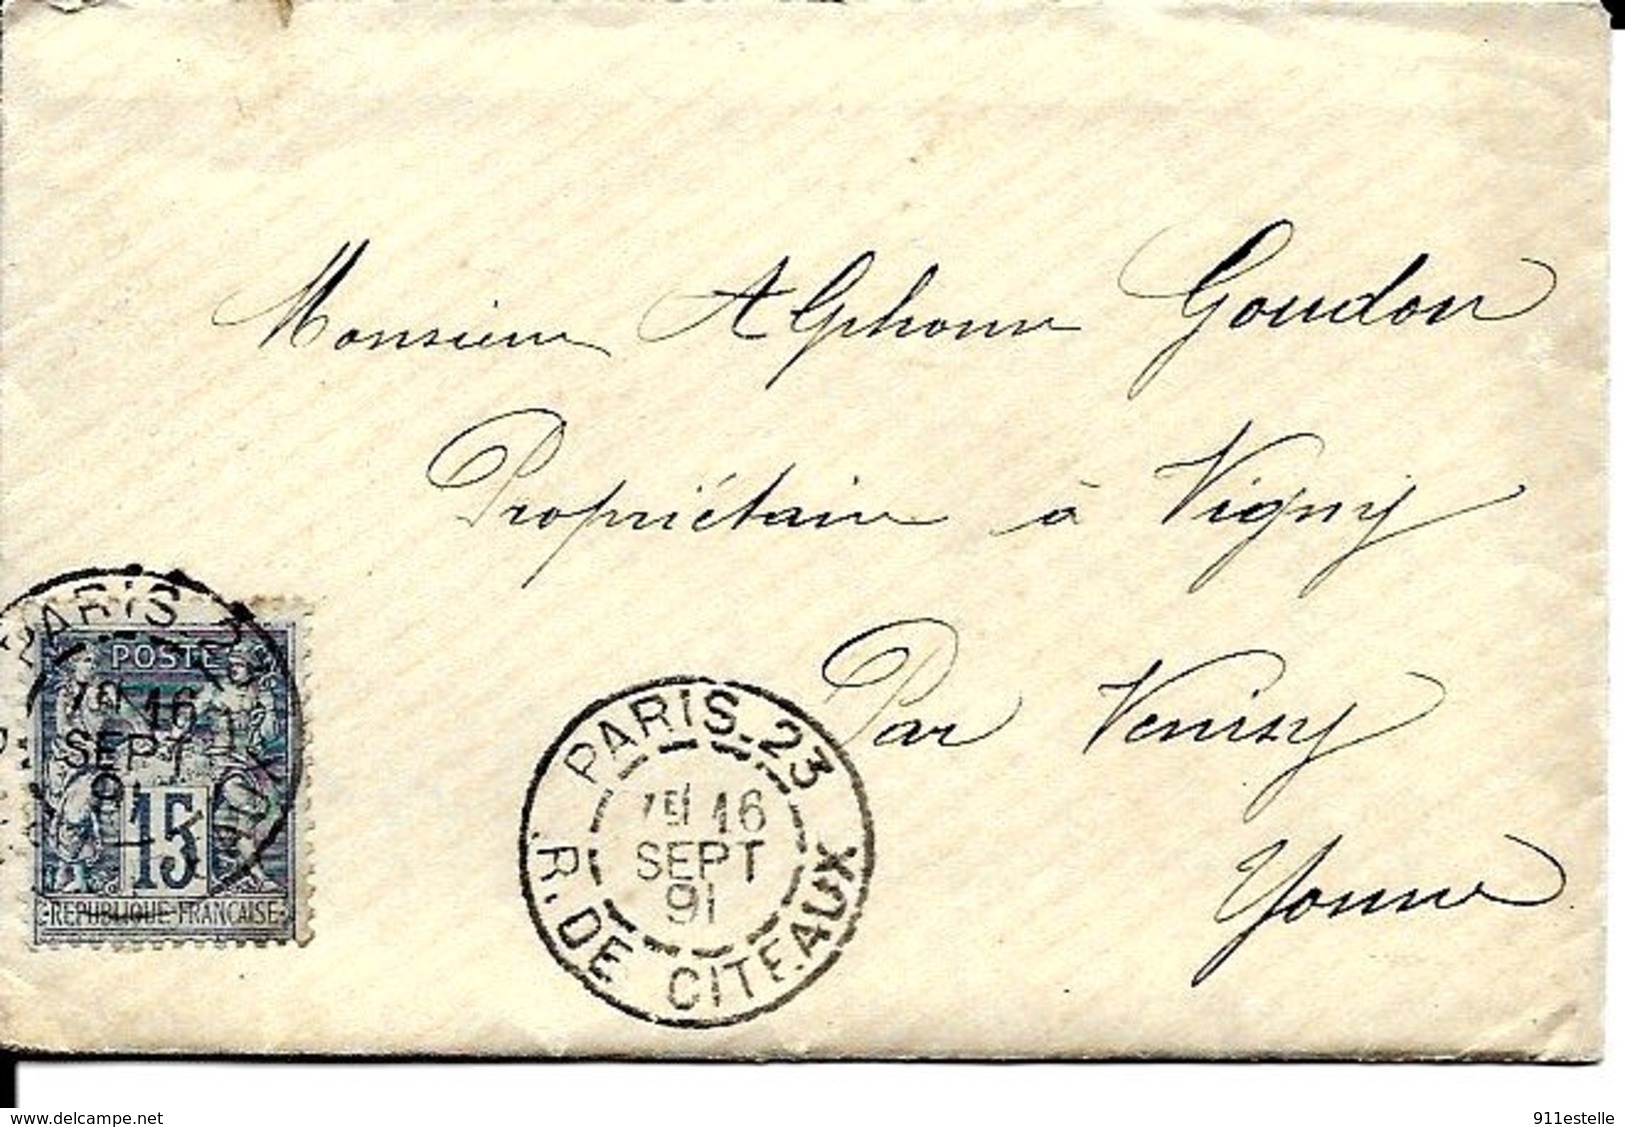 Monsieur Alphonse Goudon
Propriétaire à Vigny
Par Venisy
Yonne
PARIS. 23
16
SEPT
91
R. DE CITEAUX
PARIS
16
SEPT
91
POSTE
15
REPUBLIQUE FRANÇAISE
www.delcampe.net
911estelle